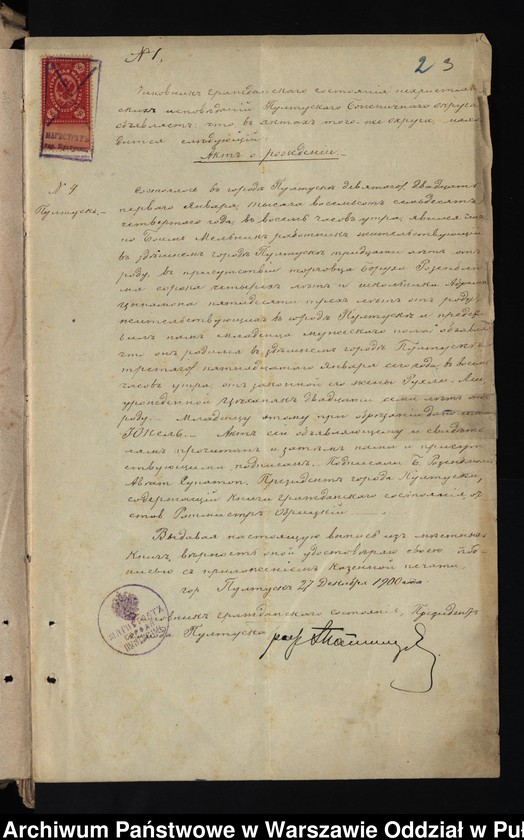 № 1.
23
Чиновникъ гражданскаго состоянія нехристіан-
скихъ исповѣданій Пултускаго Гминнаго округа
объявляетъ что въ актахъ того-же округа нахо-
дится слѣдующій
Актъ о рожденіи.
№ 9
Пултускъ.
Состоялось въ городѣ Пултускъ девятаго двадцать
перваго Января тысяча восемьсотъ семьдесятъ
четвертаго года, въ восемь часовъ утра, явился
Мельникъ работникъ жительствующій
въ здѣшнемъ городѣ Пултускъ тридцати лѣтъ отъ
роду, въ присутствіи торговца Боруха Розенблю
ма сорока четырехъ лѣтъ и школьника Абрама
пятидесяти трехъ лѣтъ отъ роду
жительствующихъ въ городѣ Пултускъ и предъя-
вилъ намъ младенца мужескаго пола объявляя
что онъ родился въ здѣшнемъ городѣ Пултускъ
Января сего года, въ восемь
часовъ утра, отъ законной его жены Рухли-Леи
урожденной двадцати семи лѣтъ отъ
роду. Младенцу этому при обрѣзаніи дано имя
Юкель. Актъ сей объявляющему и свидѣте-
лямъ прочитанъ и затѣмъ нами и присут-
ствующими подписанъ. Подписали Б. Розенблюмъ
Президентъ города Пултуска,
содержащій Книги гражданскаго состоянія
Ротмистръ
Выдавая настоящую выпись изъ мѣстныхъ
Книгъ, вѣрность оной удостовѣряю своею под-
писью съ приложеніемъ казенной печати.
гор Пултускъ 27 Декабря 1900 года
Чиновникъ гражданскаго состоянія, Президентъ
города Пултуска
МАГИСТРАТЪ
Archiwum Państwowe w Warszawie Oddział w Puł